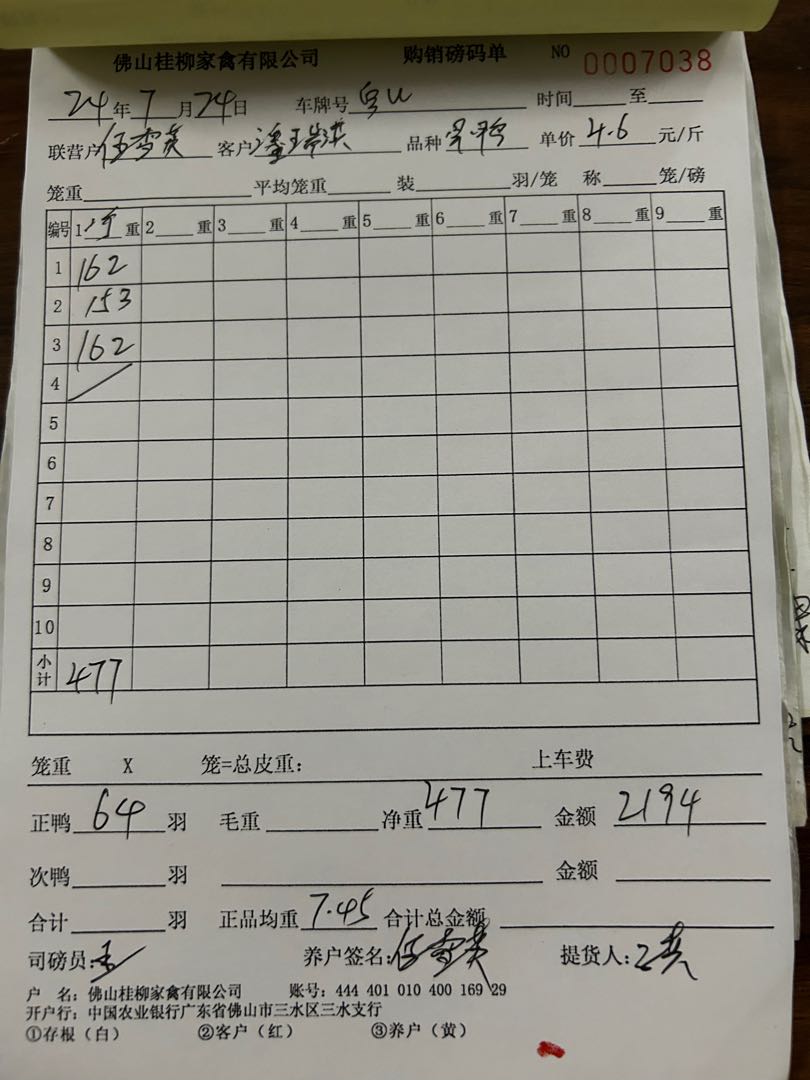 佛山桂柳家禽有限公司 购销磅码单 NO 0007038
24年7月24日 车牌号 时间 至
联营户 伍雪英 客户 潘瑞洪 品种 单价 4.6 元/斤
笼重 平均笼重 装 羽/笼 称 笼/磅
编号 1 净 重 2 重 3 重 4 重 5 重 6 重 7 重 8 重 9 重
1 162
2 153
3 162
4
5
6
7
8
9
10
小计 477
笼重 X 笼=总皮重： 上车费
正鸭 64 羽 毛重 净重 477 金额 2194
次鸭 羽 金额
合计 羽 正品均重 7.45 合计总金额
司磅员： 养户签名：伍雪英 提货人：
户 名：佛山桂柳家禽有限公司 账号：444 401 010 400 169 29
开户行：中国农业银行广东省佛山市三水区三水支行
①存根（白） ②客户（红） ③养户（黄）